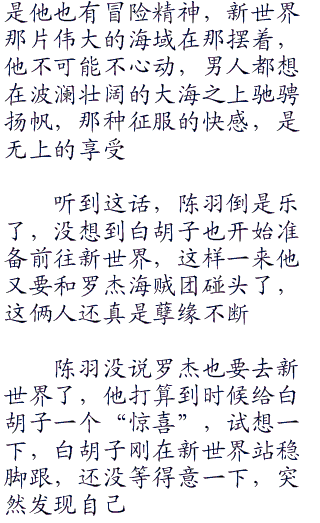 是他也有冒险精神，新世界
那片伟大的海域在那摆着，
他不可能不心动，男人都想
在波澜壮阔的大海之上驰骋
扬帆，那种征服的快感，是
无上的享受
听到这话，陈羽倒是乐
了，没想到白胡子也开始准
备前往新世界，这样一来他
又要和罗杰海贼团碰头了，
这俩人还真是孽缘不断
陈羽没说罗杰也要去新
世界了，他打算到时候给白
胡子一个“惊喜”，试想一
下，白胡子刚在新世界站稳
脚跟，还没等得意一下，突
然发现自己